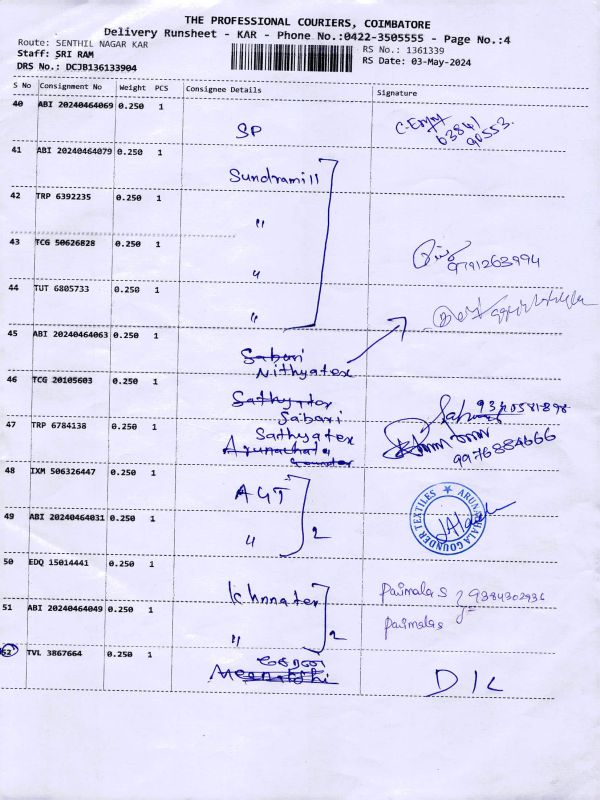 THE PROFESSIONAL COURIERS, COIMBATORE
Delivery Runsheet - KAR - Phone No.:0422-3505555 - Page No.:4
Route: SENTHIL NAGAR KAR
RS No.: 1361339
Staff: SRI RAM
RS Date: 03-May-2024
DRS No.: DCJB136133904
S No Consignment No Weight PCS Consignee Details Signature
40 ABI 20240464069 0.250 1
SP
63841
90553
41 ABI 20240464079 0.250 1
Sundramill
42 TRP 6392235 0.250 1
"
43 TCG 50626828 0.250 1
"
9791263994
44 TUT 6805733 0.250 1
"
45 ABI 20240464063 0.250 1
Sabari
Nithyatex
46 TCG 20105603 0.250 1
Sathyatex
Sabari
47 TRP 6784138 0.250 1
Sathyatex
Arunachala
9976884666
48 IXM 506326447 0.250 1
AGT
ARUNACHALA GOUNDER TEXTILES
49 ABI 20240464031 0.250 1
" 2
50 EDQ 15014441 0.250 1
Parimala S 9384302936
51 ABI 20240464049 0.250 1
" 2
Parimala s
52 TVL 3867664 0.250 1
Meenakshi